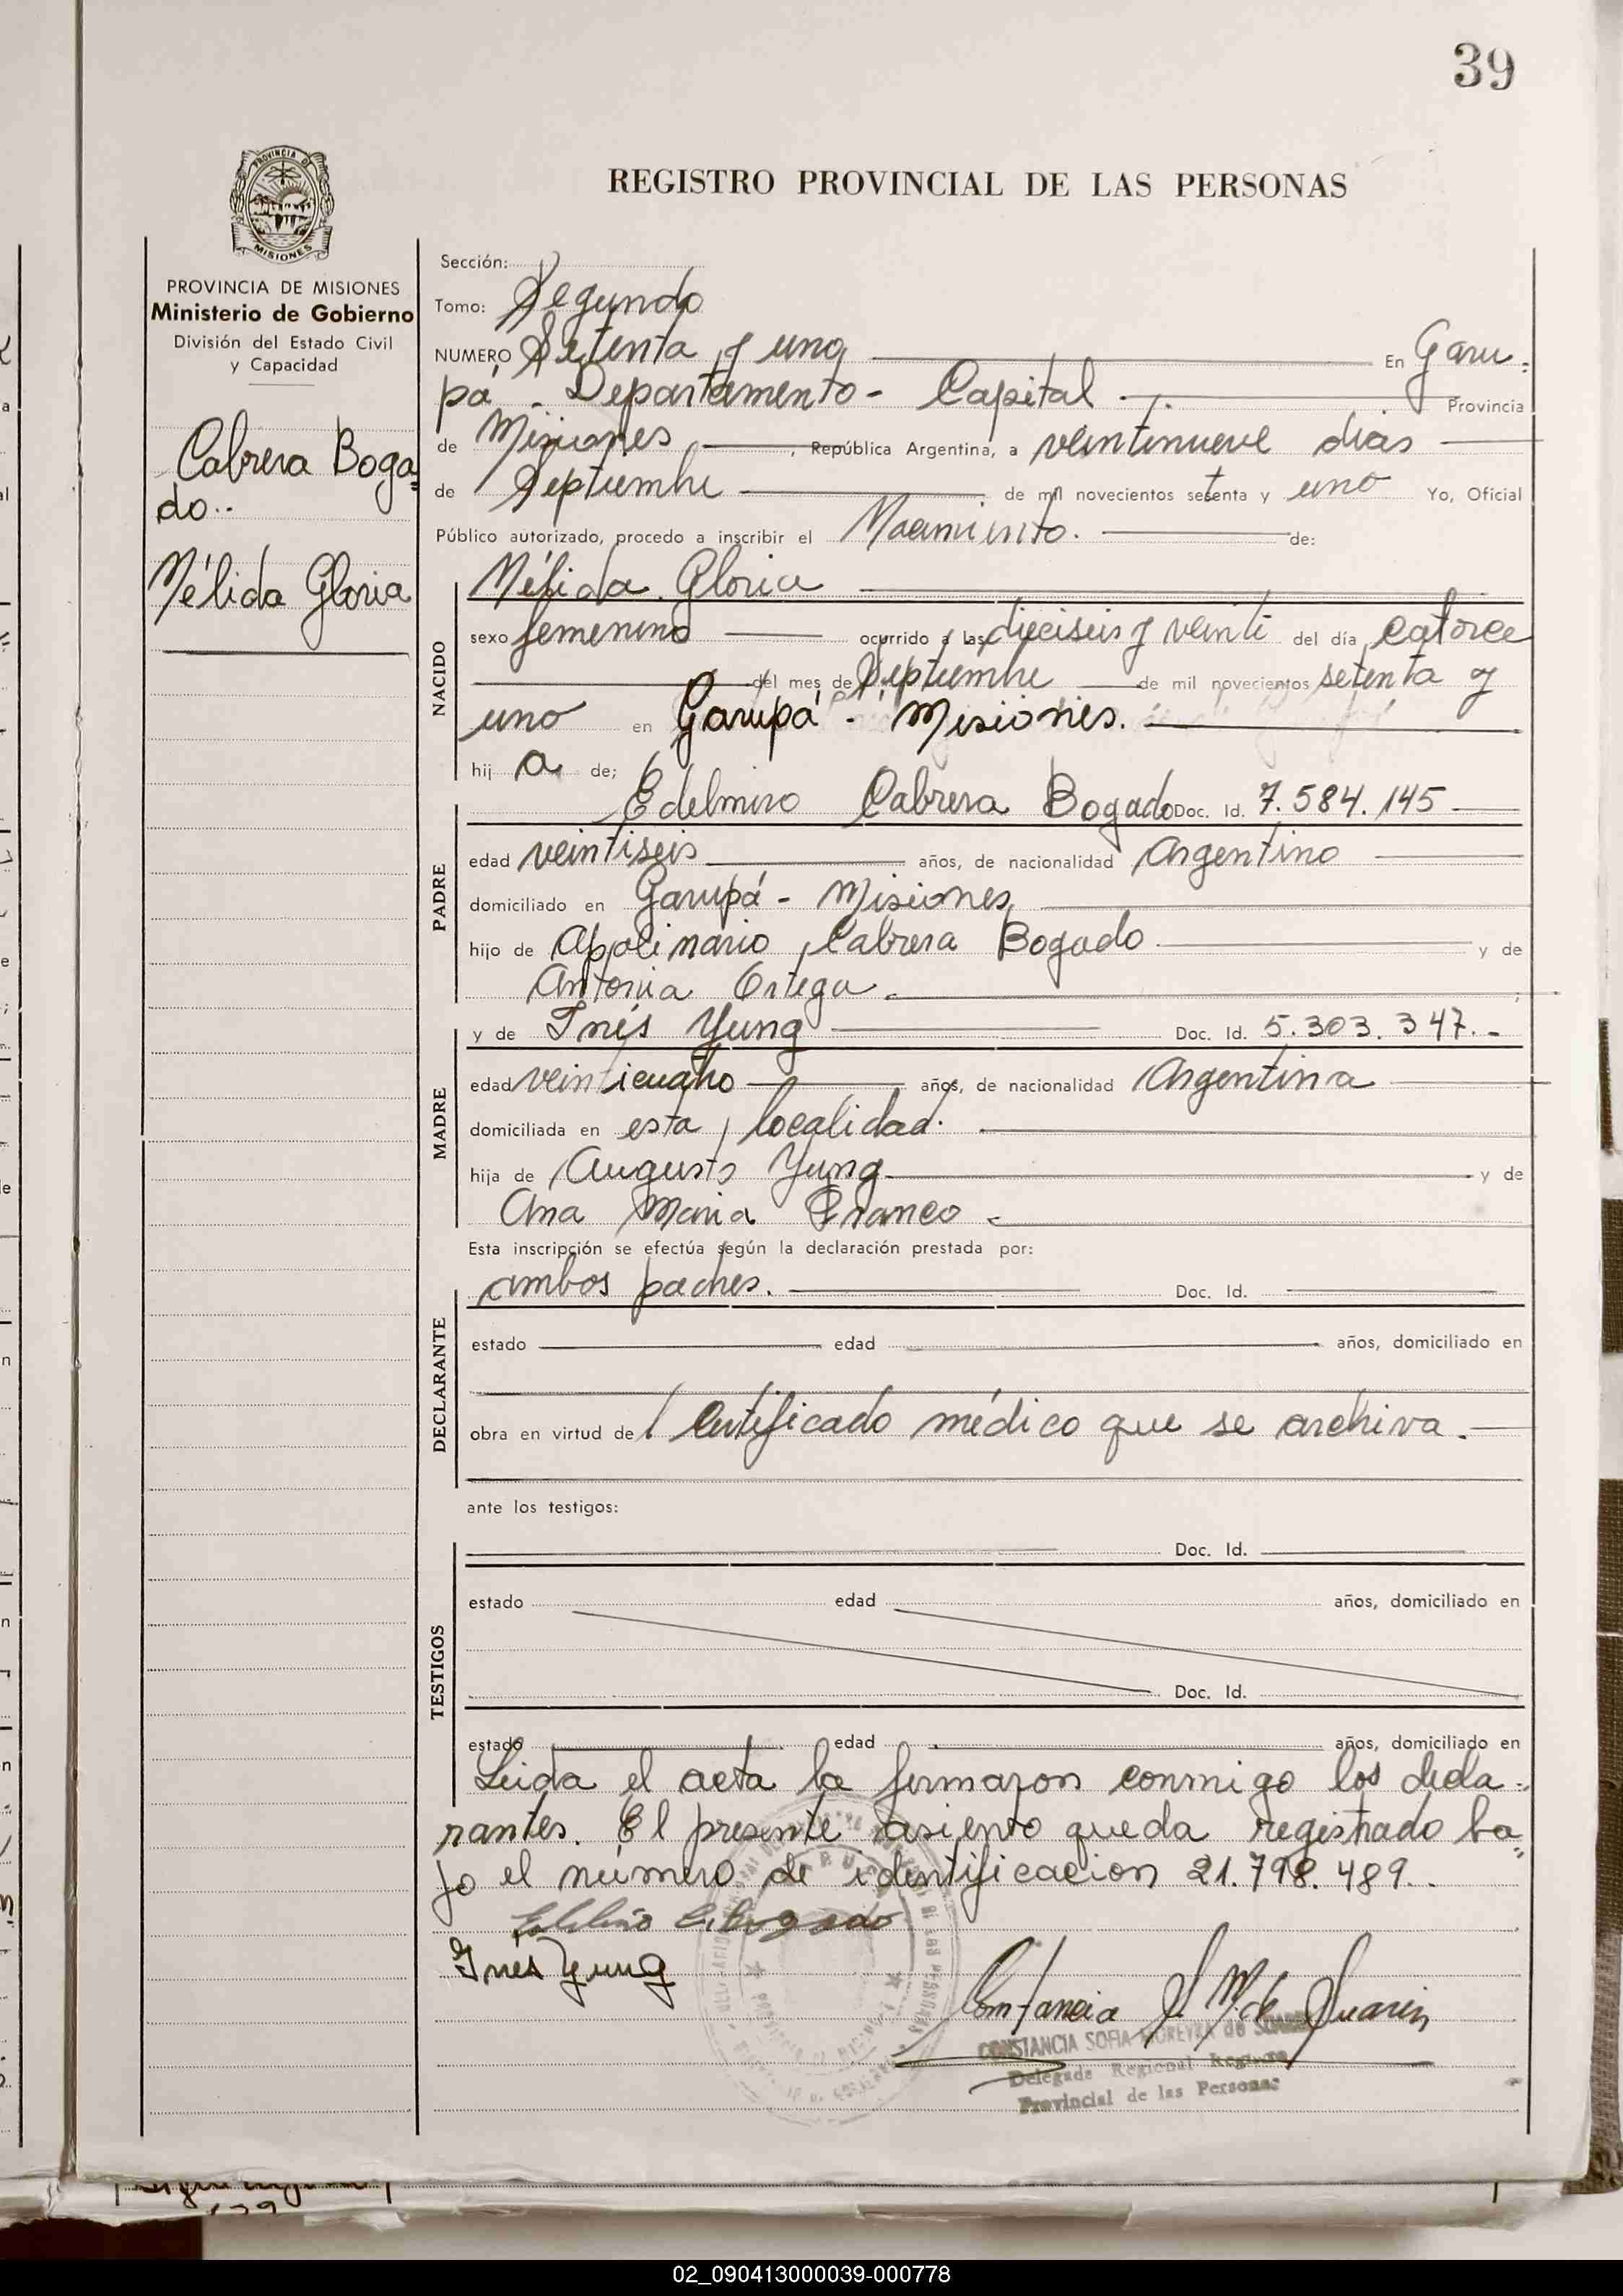 39
PROVINCIA DE MISIONES
REGISTRO PROVINCIAL DE LAS PERSONAS
PROVINCIA DE MISIONES
Ministerio de Gobierno
División del Estado Civil
y Capacidad
Cabrera Boga
do..
Nélida Gloria
Sección:
Tomo: Segundo
NUMERO Setenta y uno En Garu-
pá - Departamento - Capital Provincia
de Misiones, República Argentina, a veintinueve dias
de Septiembre de mil novecientos setenta y uno Yo, Oficial
Público autorizado, procedo a inscribir el Nacimiento. de:
NACIDO
Nélida Gloria
sexo femenino ocurrido a las dieciseis y veinte del día catorce
del mes de Septiembre de mil novecientos setenta y
uno en Garupá - Misiones.
hij a de;
PADRE
Edelmiro Cabrera Bogado Doc. Id. 7.584.145
edad veintiseis años, de nacionalidad Argentino
domiciliado en Garupá - Misiones
hijo de Apolinario Cabrera Bogado y de
Antonia Ortega.
MADRE
y de Inés Yung Doc. Id. 5.303.347.-
edad veinticuatro años, de nacionalidad Argentina
domiciliada en esta localidad.
hija de Augusto Yung y de
Ana Maria Franco
Esta inscripción se efectúa según la declaración prestada por:
DECLARANTE
ambos padres. Doc. Id.
estado edad años, domiciliado en
obra en virtud de Certificado médico que se archiva.
ante los testigos:
TESTIGOS
Doc. Id.
estado edad años, domiciliado en
Doc. Id.
estado edad años, domiciliado en
Leida el acta la firmaron conmigo los decla-
rantes. El presente asiento queda registrado ba
jo el número de identificacion 21.798.489..
Bogado
Inés Yung
Constancia S. M. de Suarez
CONSTANCIA SOFIA MOREYRA de SUAREZ
Delegada Regional Registro
Provincial de las Personas
02_090413000039-000778